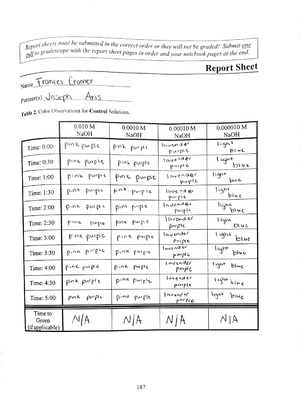 Report sheets must be submitted in the correct order or they will not be graded! Submit one
pdf to gradescope with the report sheet pages in order and your notebook pages at the end.
Report Sheet
Name Frances Cramer
Partner(s) Joseph Aris
Table 2. Color Observations for Control Solutions.
0.010 M NaOH 0.0010 M NaOH 0.00010 M NaOH 0.000010 M NaOH
Time: 0:00 pink purple pink purple lavender purple light blue
Time: 0:30 pink purple pink purple lavender purple light blue
Time: 1:00 pink purple pink purple lavender purple light blue
Time: 1:30 pink purple pink purple lavender purple light blue
Time: 2:00 pink purple pink purple lavender purple light blue
Time: 2:30 pink purple pink purple lavender purple light blue
Time: 3:00 pink purple pink purple lavender purple light blue
Time: 3:30 pink purple pink purple lavender purple light blue
Time: 4:00 pink purple pink purple lavender purple light blue
Time: 4:30 pink purple pink purple lavender purple light blue
Time: 5:00 pink purple pink purple lavender purple light blue
Time to Green (if applicable) N/A N/A N/A N/A
187